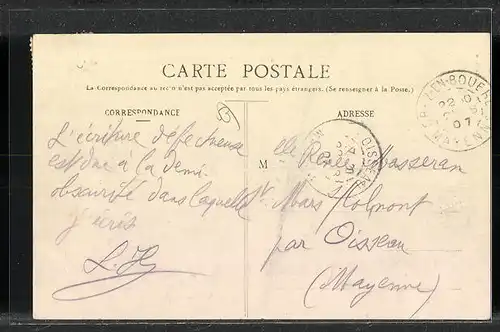 CARTE POSTALE
La Correspondance au recto n'est pas acceptée par tous les pays étrangers. (Se renseigner à la Poste.)
CORRESPONDANCE
L'écriture défectueuse
est due à la demi
obscurité dans laquelle
j'écris
L. H
ADRESSE
M elle Renée Masseran
St Mars s/Colmont
par Oisseau
(Mayenne)
OISSEAU
07
MAYENNE